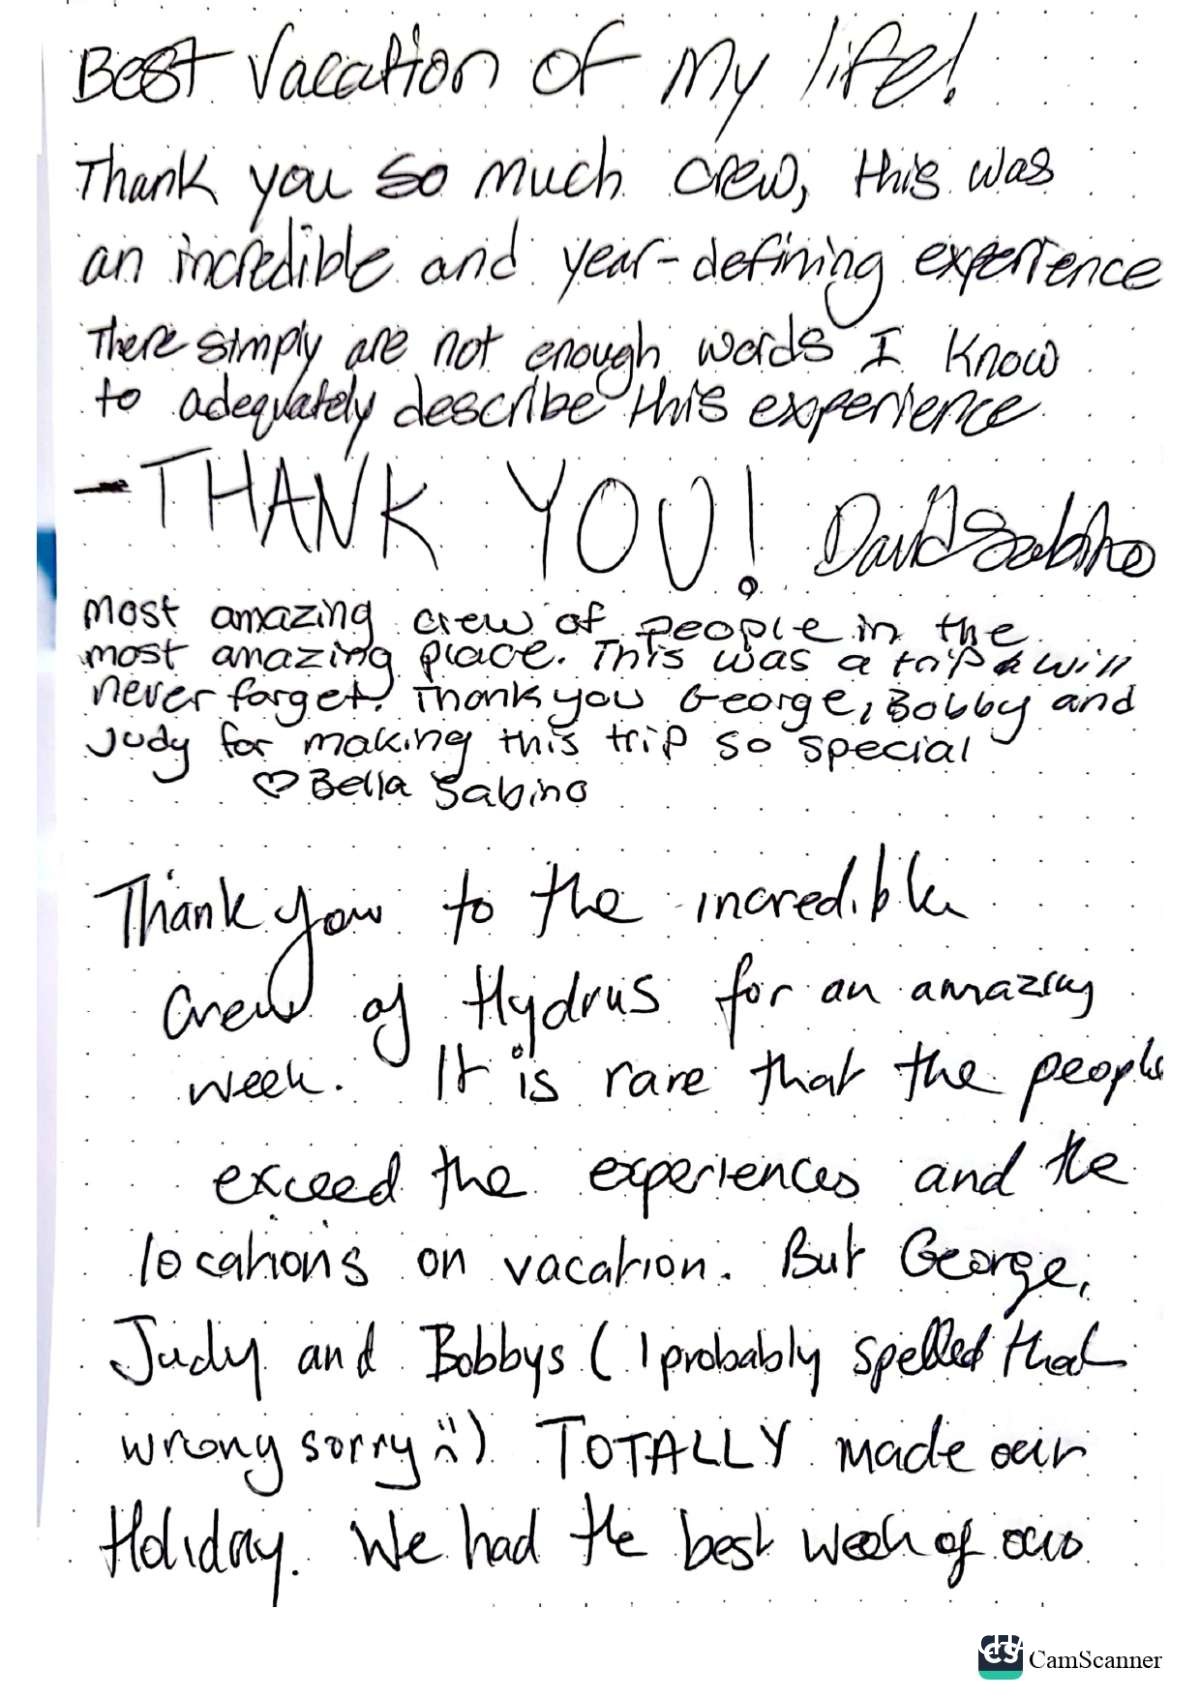 Best Vacation of my life!
Thank you so much crew, this was
an incredible and year-defining experience
There simply are not enough words I know
to adequately describe this experience
- THANK YOU! David Sabino
most amazing crew of people in the
most amazing place. This was a trip I will
never forget. Thank you George, Bobby and
Judy for making this trip so special
♡ Bella Sabino
Thank you to the incredible
Crew of Hydrus for an amazing
week. It is rare that the people
exceed the experiences and the
locations on vacation. But George,
Judy and Bobbys (I probably spelled that
wrong sorry :() TOTALLY made our
Holiday. We had the best week of our
CS CamScanner